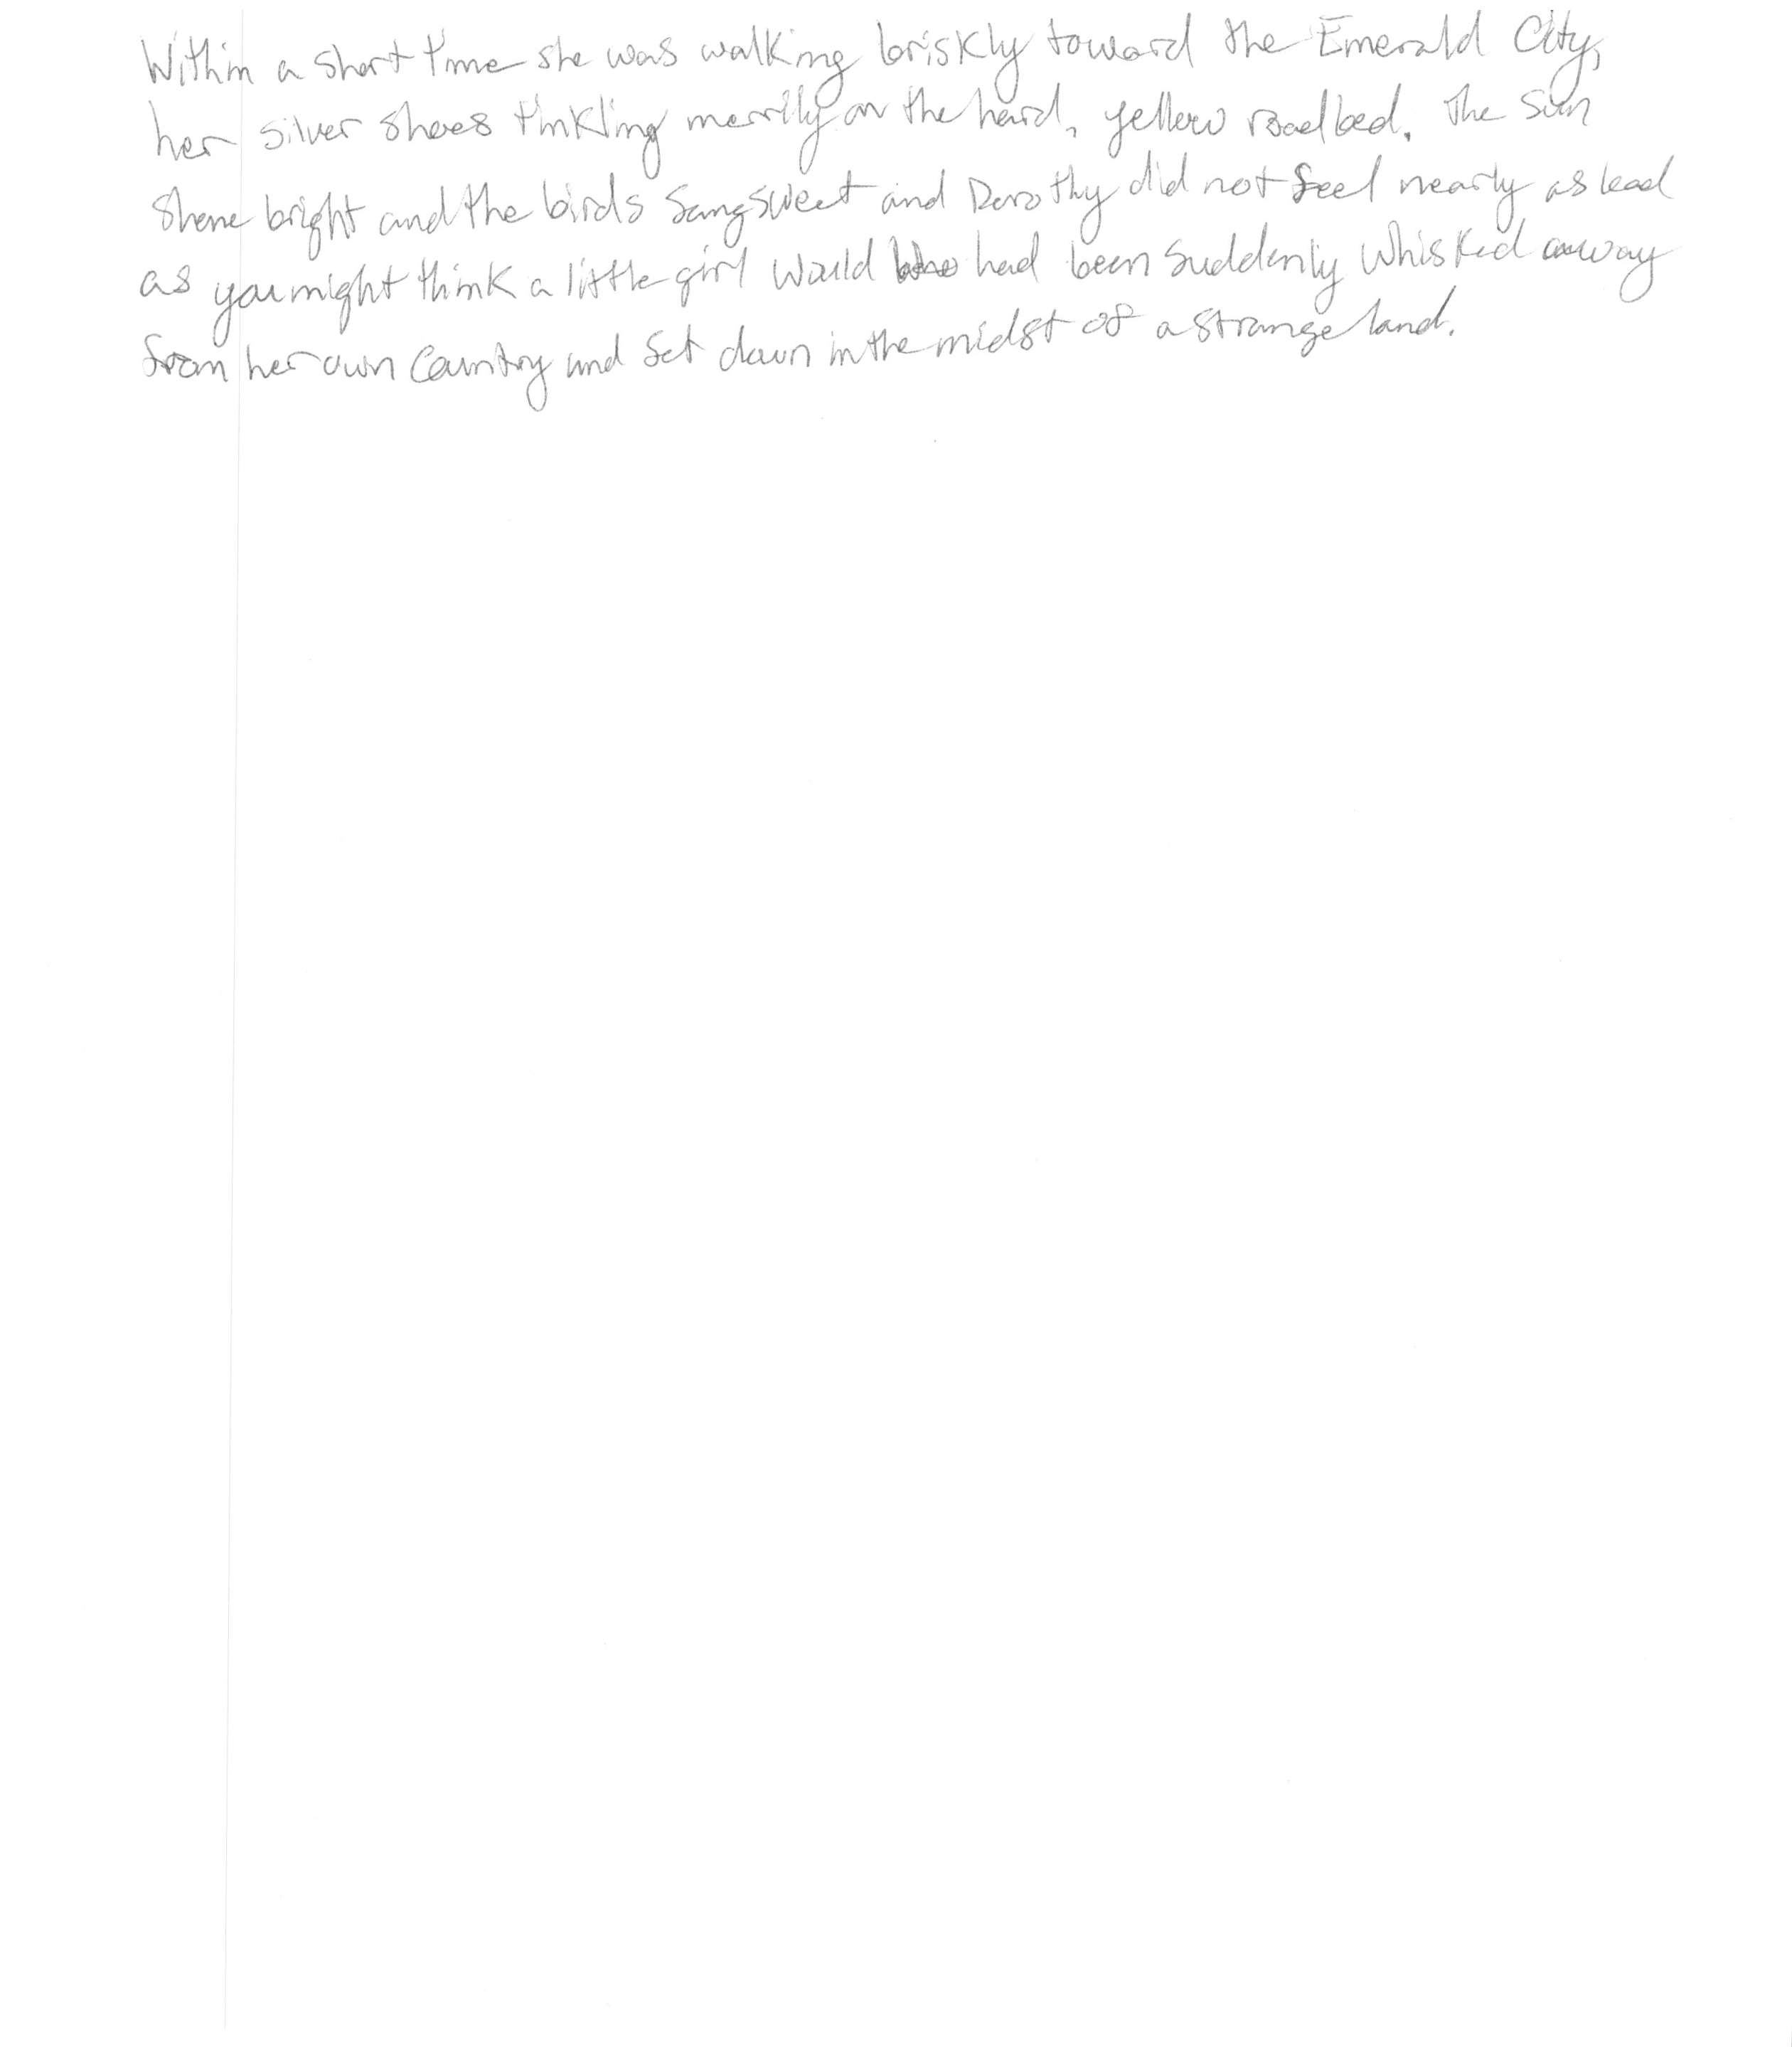 Within a short time she was walking briskly toward the Emerald City,
her silver shoes tinkling merrily on the hard, yellow roadbed. The sun
shone bright and the birds sang sweet and Dorothy did not feel nearly as bad
as you might think a little girl would who had been suddenly whisked away
from her own country and set down in the midst of a strange land.